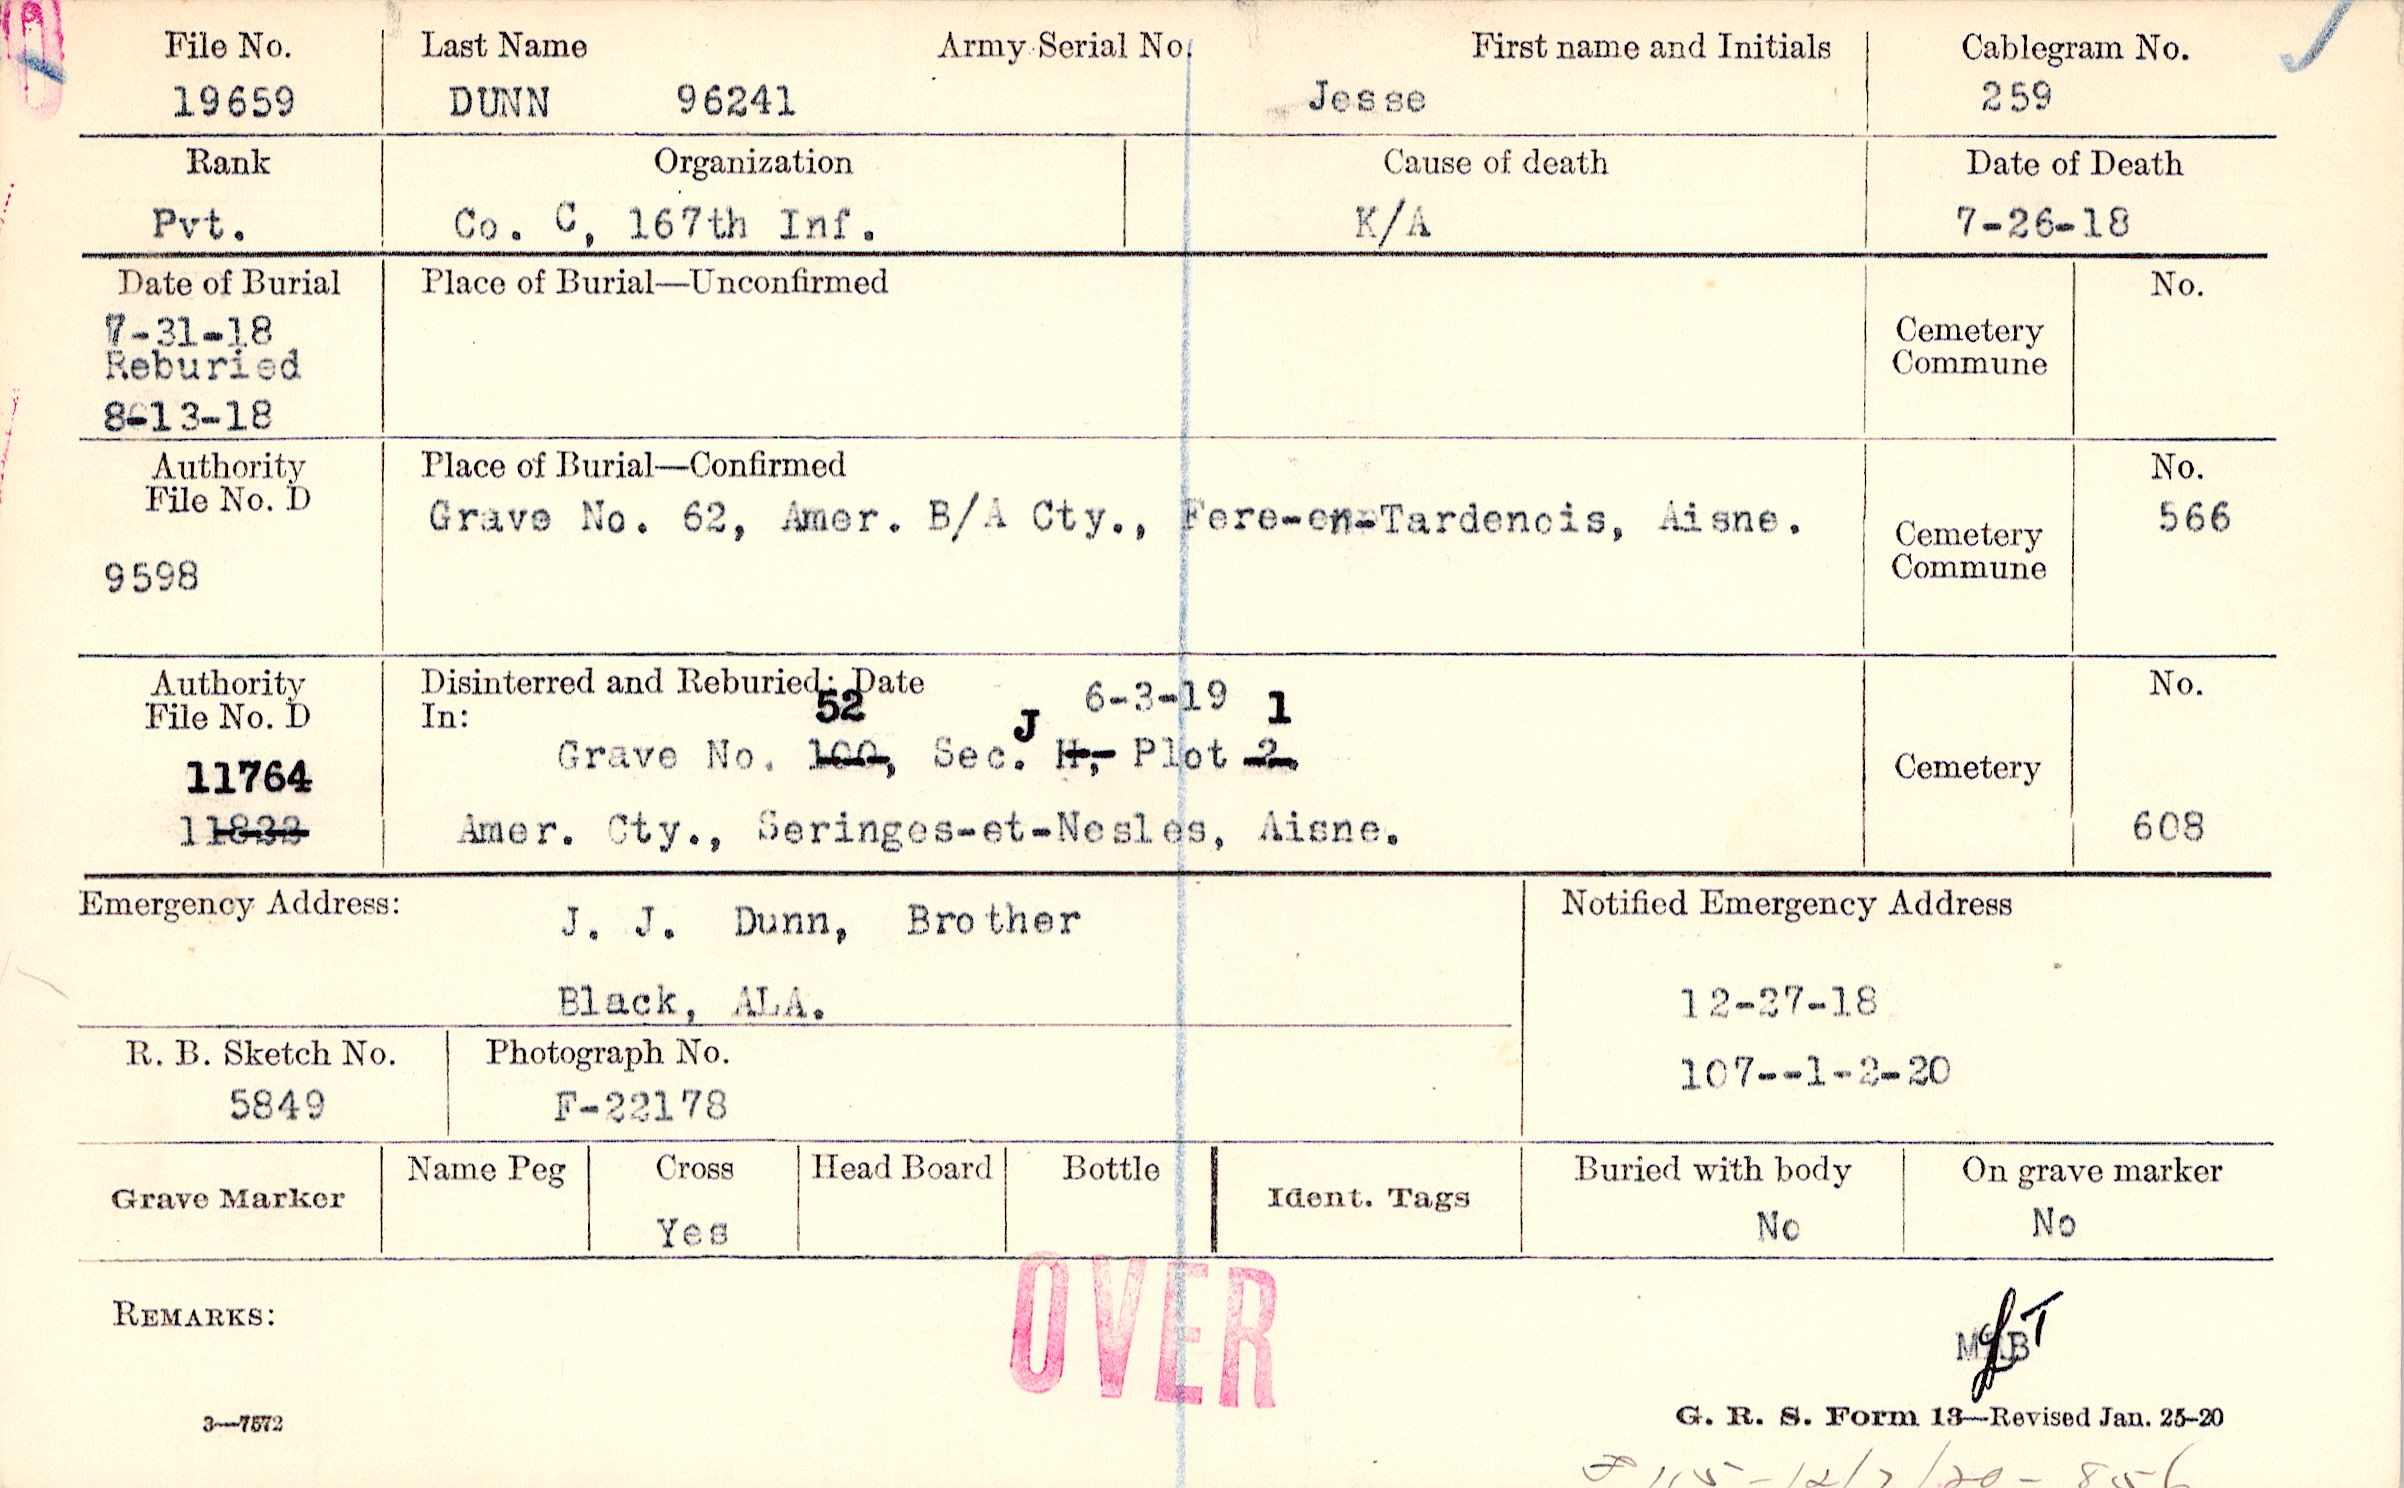 File No. Last Name Army Serial No. First name and Initials Cablegram No.
19659 DUNN 96241 Jesse 259
Rank Organization Cause of death Date of Death
Pvt. Co. C, 167th Inf. K/A 7-26-18
Date of Burial Place of Burial—Unconfirmed No.
7-31-18
Reburied
8-13-18
Cemetery
Commune
Authority Place of Burial—Confirmed No.
File No. D
Grave No. 62, Amer. B/A Cty., Fere-en-Tardenois, Aisne. 566
Cemetery
Commune
9598
Authority Disinterred and Reburied: Date 6-3-19 No.
File No. D In:
52 J 1
Grave No. 100, Sec. H, Plot 2.
11764 Cemetery
11833 Amer. Cty., Seringes-et-Nesles, Aisne. 608
Emergency Address: Notified Emergency Address
J. J. Dunn, Brother
Black, ALA. 12-27-18
R. B. Sketch No. Photograph No. 107--1-2-20
5849 F-22178
Grave Marker Name Peg Cross Head Board Bottle Ident. Tags Buried with body On grave marker
Yes No No
OVER
REMARKS:
3—7572
G. R. S. Form 13—Revised Jan. 25-20